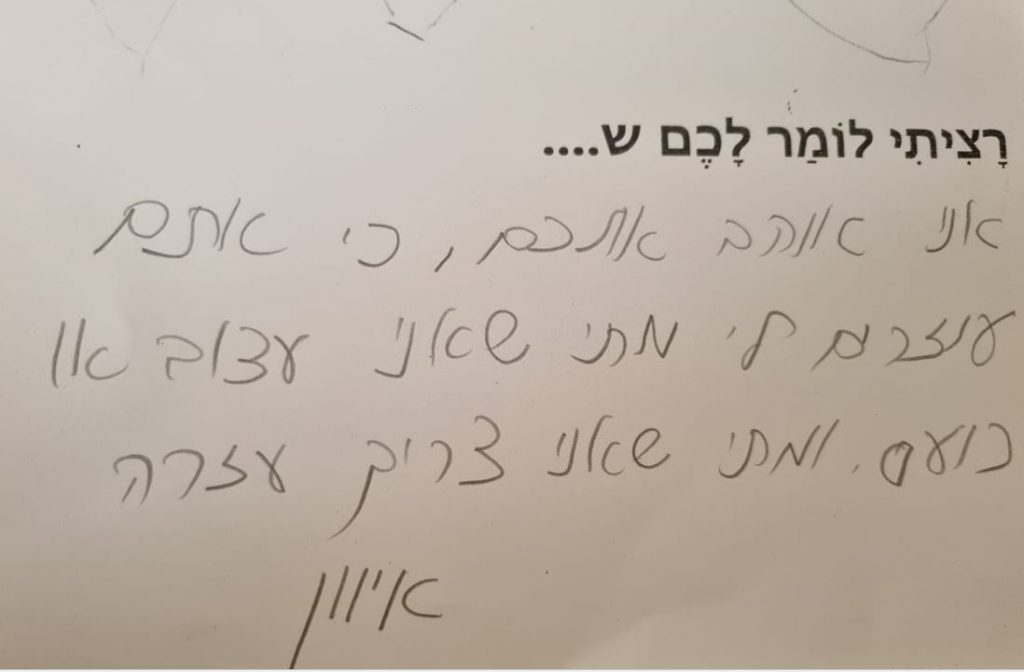 רָצִיתִי לוֹמַר לָכֶם ש....
אני אוהב אותכם, כי אתם
עוזרם לי מתי שאני עצוב או
כועס. ומתי שאני צריך עזרה
איוון